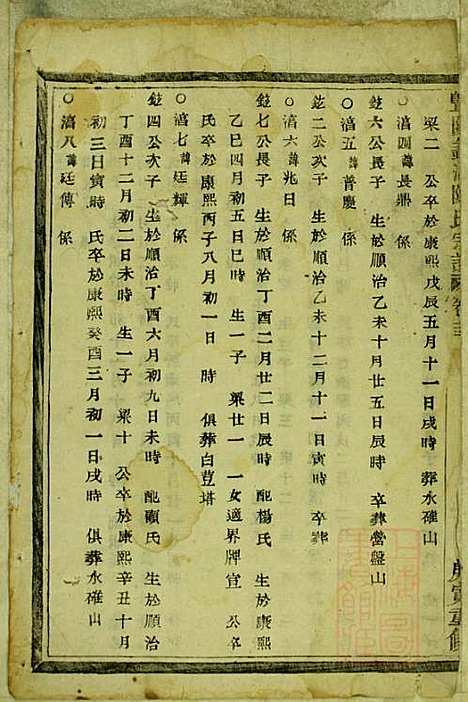 梁二　公卒於康熙戊辰五月十一日戌時　葬水碓山
○滈四諱長鼎　係
鉉六公長子　生於順治乙未十月廿五日辰時　卒葬當盤山
○滈五諱普慶　係
鉉二公次子　生於順治乙未十二月十一日寅時　卒葬
○滈六諱兆日　係
鉉七公長子　生於順治丁酉二月廿二日辰時　配楊氏　生於康熙
乙巳四月初五日巳時　生一子　梁廿一　一女適界牌宣　公卒
氏卒於康熙丙子八月初一日　時　俱葬白荳塔
○滈七諱廷輝　係
鉉四公次子　生於順治丁酉六月初九日未時　配顧氏　生於順治
丁酉十二月初二日未時　生一子　梁十　公卒於康熙辛丑十月
初三日寅時　氏卒於康熙癸酉三月初一日戌時　俱葬水碓山
○滈八諱廷傳　係